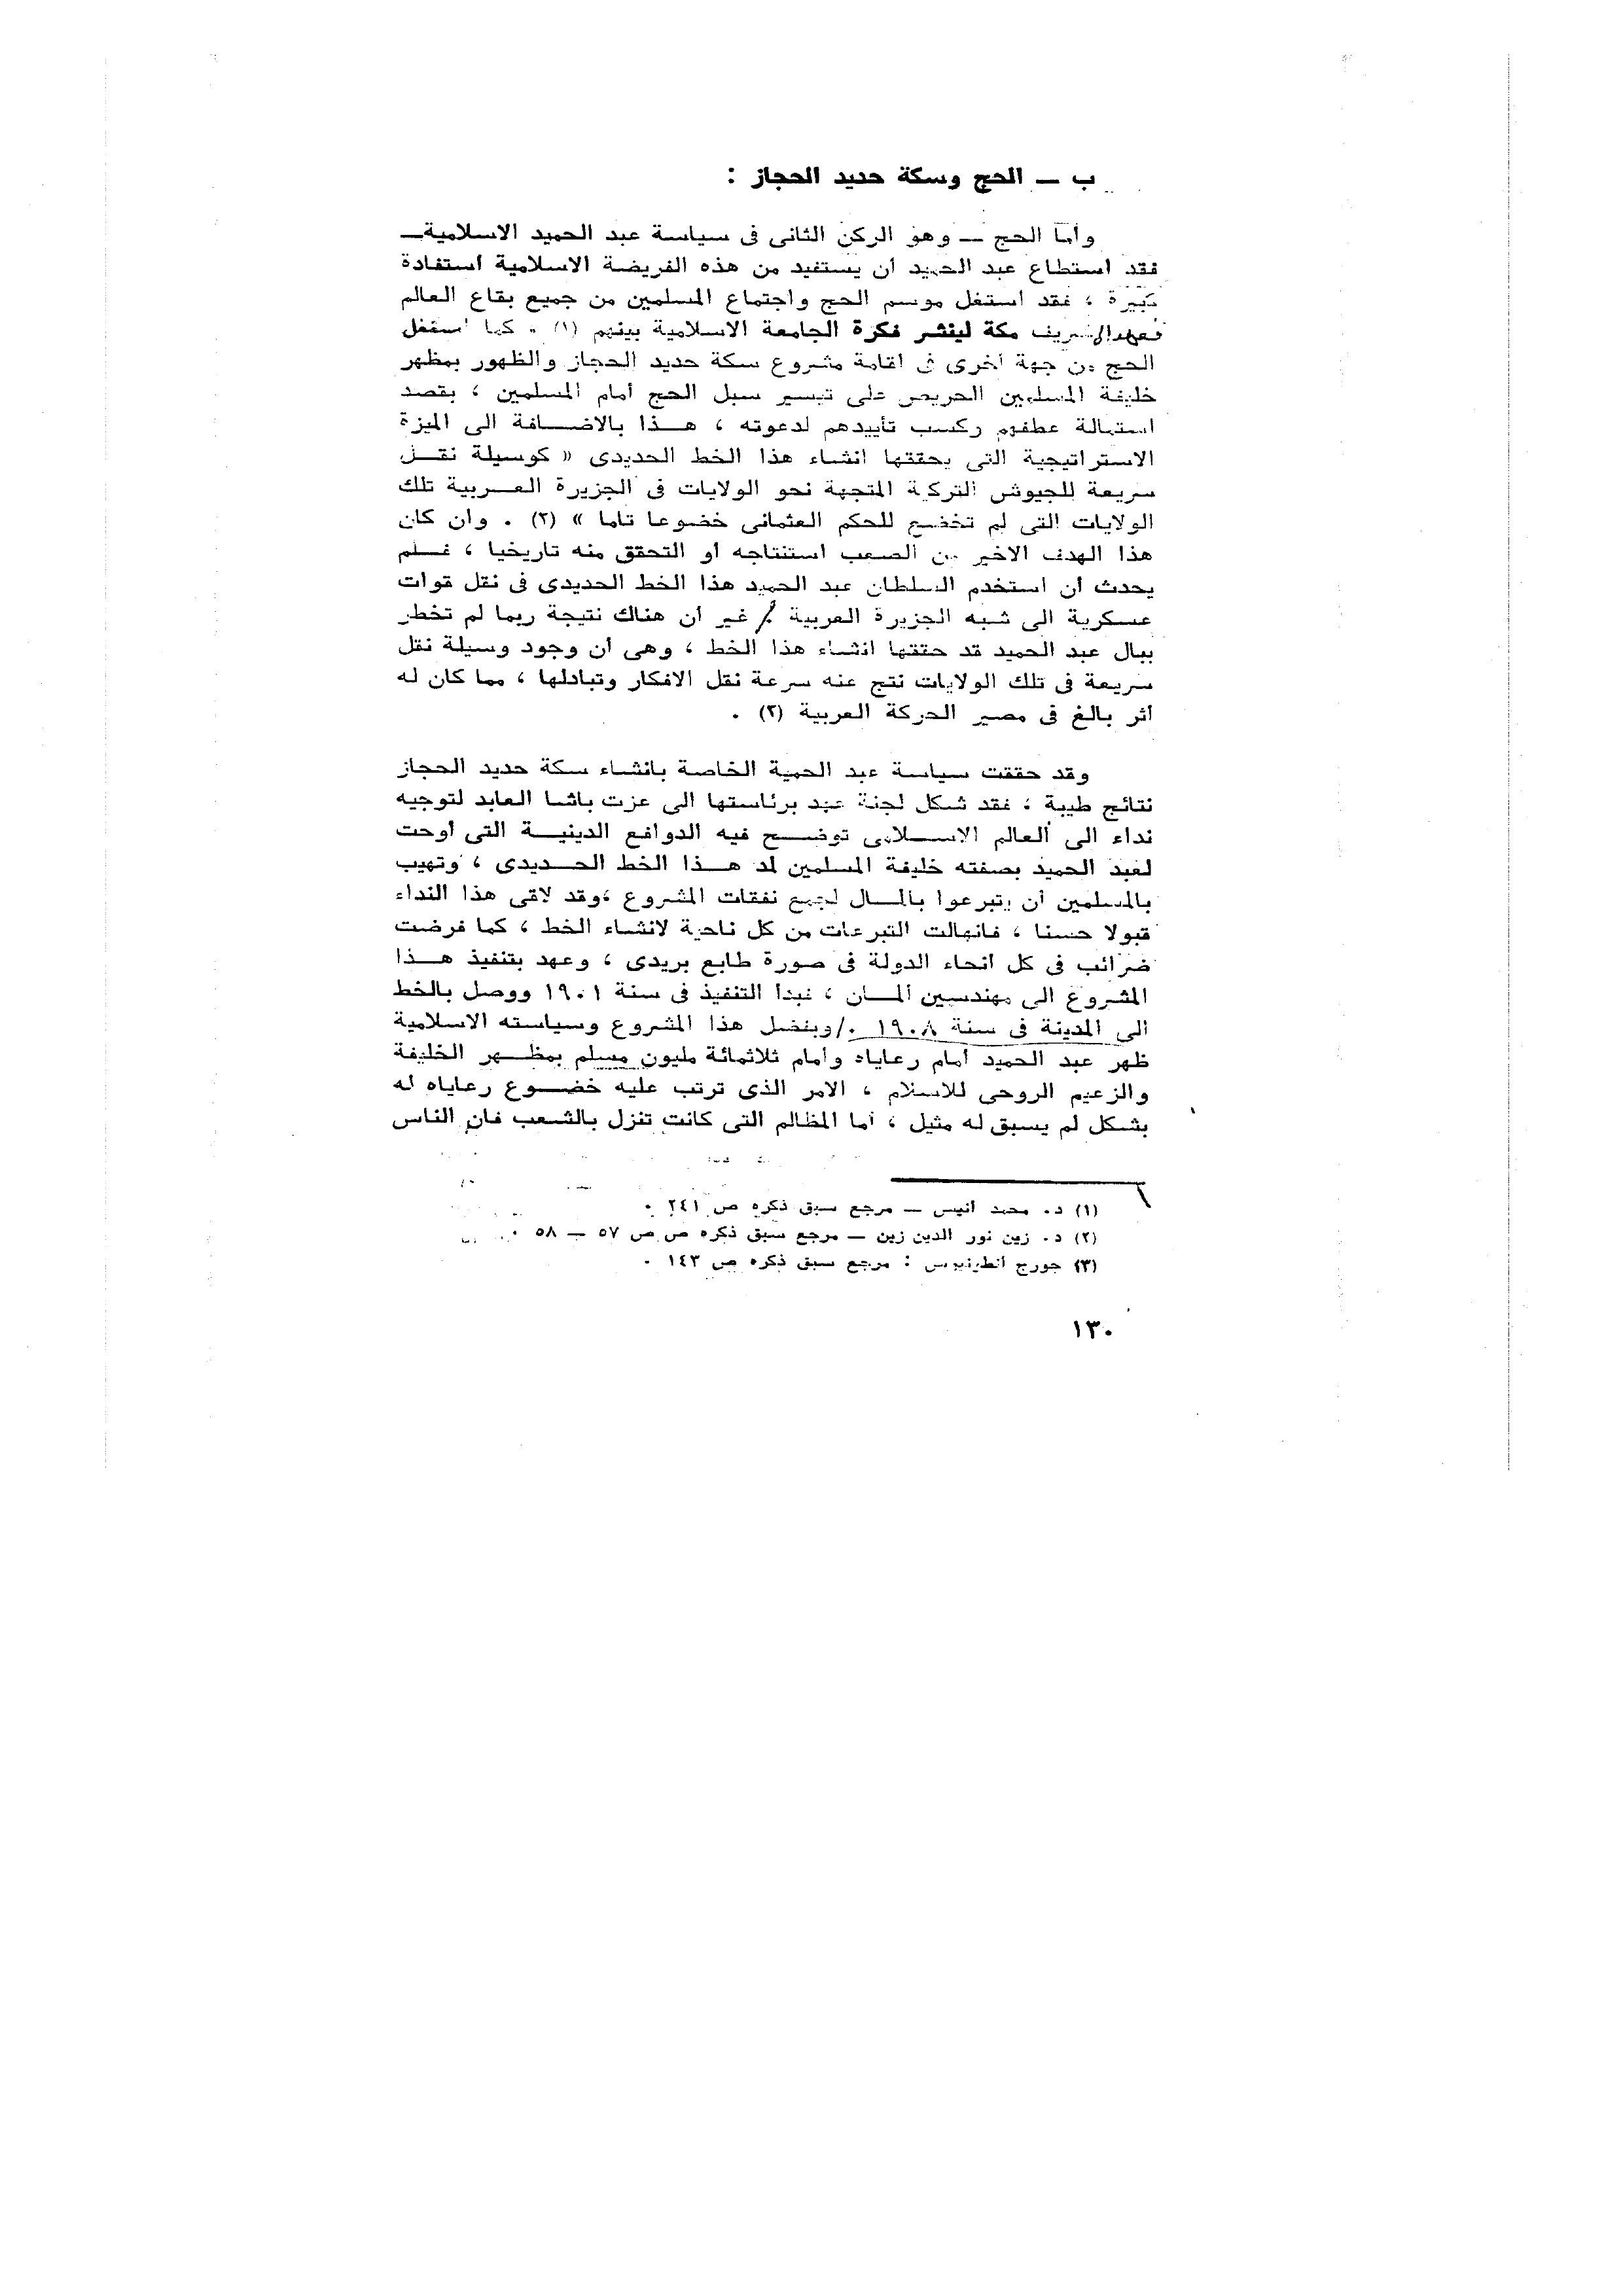 ب — الحج وسكة حديد الحجاز :
وأما الحج — وهو الركن الثانى فى سياسة عبد الحميد الاسلامية —
فقد استطاع عبد الحميد أن يستفيد من هذه الفريضة الاسلامية استفادة
كبيرة ، فقد استغل موسم الحج واجتماع المسلمين من جميع بقاع العالم
مكة لينشر فكرة الجامعة الاسلامية بينهم (١) . كما استغل
الحج من جهة أخرى فى اقامة مشروع سكة حديد الحجاز والظهور بمظهر
خليفة المسلمين الحريص على تيسير سبل الحج أمام المسلمين ، بقصد
استمالة عطفهم وكسب تأييدهم لدعوته ، هـذا بالاضـافة الى الميزة
الاستراتيجية التى يحققها انشاء هذا الخط الحديدى « كوسيلة نقـل
سريعة للجيوش التركية المتجهة نحو الولايات فى الجزيرة العـربية تلك
الولايات التى لم تخضع للحكم العثمانى خضوعا تاما » (٢) . وان كان
هذا الهدف الاخير من الصعب استنتاجه أو التحقق منه تاريخيا ، فـلم
يحدث أن استخدم السلطان عبد الحميد هذا الخط الحديدى فى نقل قوات
عسكرية الى شبه الجزيرة العربية . غير أن هناك نتيجة ربما لم تخطر
ببال عبد الحميد قد حققها انشاء هذا الخط ، وهى أن وجود وسيلة نقل
سريعة فى تلك الولايات نتج عنه سرعة نقل الافكار وتبادلها ، مما كان له
أثر بالغ فى مصير الحركة العربية (٣) .
وقد حققت سياسة عبد الحمية الخاصة بانشاء سكة حديد الحجاز
نتائج طيبة ، فقد شكل لجنة عهد برئاستها الى عزت باشا العابد لتوجيه
نداء الى العالم الاسـلامى توضـح فيه الدوافع الدينيـة التى أوحت
لعبد الحميد بصفته خليفة المسلمين لمد هـذا الخط الحـديدى ، وتهيب
بالمسلمين أن يتبرعوا بالمـال لجمع نفقات المشروع ،وقد لاقى هذا النداء
قبولا حسنا ، فانهالت التبرعات من كل ناحية لانشاء الخط ، كما فرضت
ضرائب فى كل أنحاء الدولة فى صورة طابع بريدى ، وعهد بتنفيذ هـذا
المشروع الى مهندسين ألمـان ، فبدأ التنفيذ فى سنة ١٩٠١ ووصل بالخط
الى المدينة فى سنة ١٩٠٨ . وبفضل هذا المشروع وسياسته الاسلامية
ظهر عبد الحميد أمام رعاياه وأمام ثلاثمائة مليون مسلم بمظـهر الخليفة
والزعيم الروحى للاسلام ، الامر الذى ترتب عليه خضـوع رعاياه له
بشكل لم يسبق له مثيل ، أما المظالم التى كانت تنزل بالشعب فان الناس
(١) د. محمد أنيس — مرجع سبق ذكره ص ٢٤١ .
(٢) د. زين نور الدين زين — مرجع سبق ذكره ص ص ٥٧ — ٥٨ .
(٣) جورج أنطونيوس : مرجع سبق ذكره ص ١٤٣ .
١٣٠